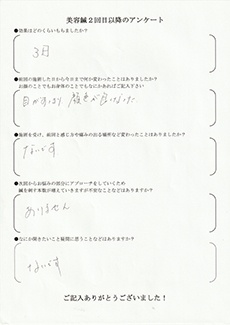 美容鍼2回目以降のアンケート
●効果はどのくらいもちましたか?
3日
●前回の施術した日から今日まで何か変わったことはありましたか?
お顔のことでもお身体のことでもなにかあればご記入下さい
目がすっきり、顔色が良くなった
●施術を受け、前回と感じ方や痛みの出る場所など変わったことはありますか?
ないです
●次回からお悩みの部分にアプローチをしていくため
鍼を刺す本数が増えていきますが不安なことなどはありますか?
ありません
●なにか聞きたいこと疑問に思うことなどはありますか?
ないです
ご記入ありがとうございました!